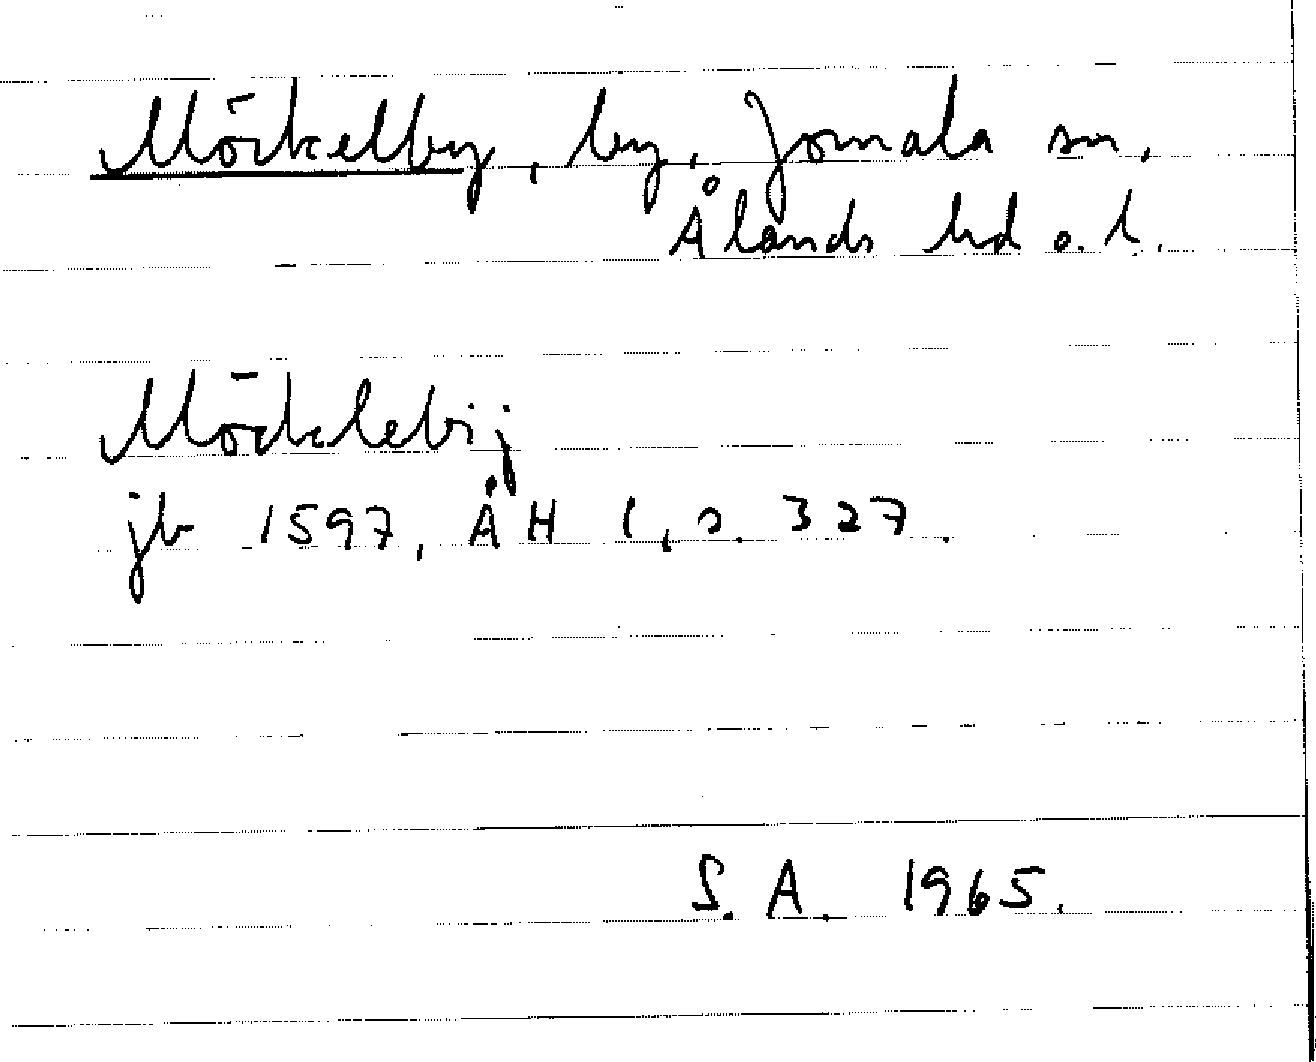 Mörkelby, by, Jomala sn,
Ålands hd o. l.
Möcklebij
jb 1597, ÅH 1, s. 327.
S. A. 1965.